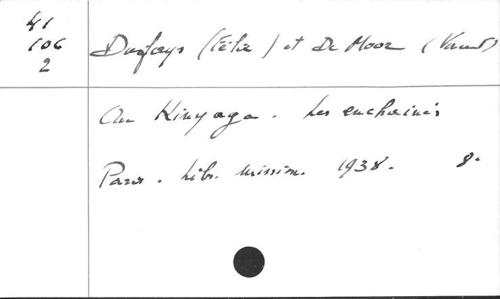 41
106
2
Dufays (Félix) et De Moor (Vincent)
Au Kinyaga. Les enchaînés
Paris. Libr. mission. 1938. 8°